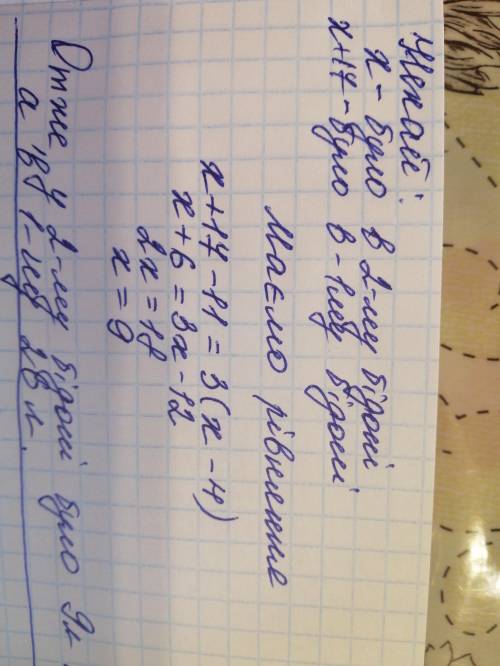 Нехай:
x - було в 2-му бідоні
x+17 - було в - 1му бідоні
Маємо рівняння
x+17-11=3(x-4)
x+6=3x-12
2x=18
x=9
Отже у 2-му бідоні було 9л
а в 1-му 28 л.